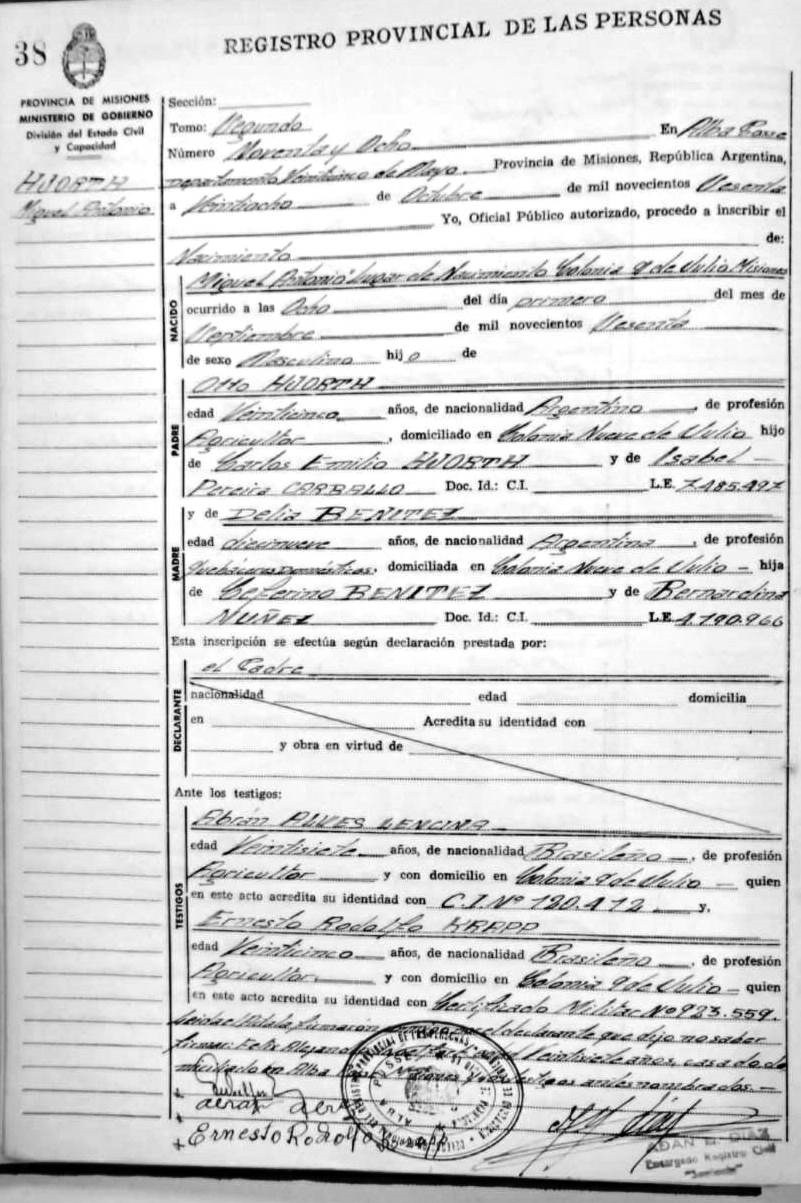 38
REGISTRO PROVINCIAL DE LAS PERSONAS
PROVINCIA DE MISIONES
MINISTERIO DE GOBIERNO
División del Estado Civil
y Capacidad
HJORTH
Miguel Antonio
Sección:
Tomo: Segundo En Alba Posse
Número Noventa y Ocho
Departamento Veinticinco de Mayo. Provincia de Misiones, República Argentina,
a Veintiocho de Octubre de mil novecientos Sesenta
Yo, Oficial Público autorizado, procedo a inscribir el
Nacimiento de:
NACIDO
Miguel Antonio lugar de Nacimiento Colonia 9 de Julio Misiones
ocurrido a las Ocho del día primero del mes de
Septiembre de mil novecientos Sesenta
de sexo Masculino hijo de
PADRE
Otto HJORTH
edad Veinticinco años, de nacionalidad Argentino, de profesión
Agricultor, domiciliado en Colonia Nueve de Julio hijo
de Carlos Emilio HJORTH y de Isabel
Pereira CARBALLO Doc. Id.: C.I. L.E. 7.485.497
MADRE
y de Delia BENITEZ
edad diecinueve años, de nacionalidad Argentina, de profesión
Quehaceres Domésticos, domiciliada en Colonia Nueve de Julio - hija
de Ceferino BENITEZ y de Bernardina
NUÑEZ Doc. Id.: C.I. L.E. 4.190.966
Esta inscripción se efectúa según declaración prestada por:
DECLARANTE
el Padre
nacionalidad edad domicilia
en Acredita su identidad con
y obra en virtud de
Ante los testigos:
TESTIGOS
Abrán ALVES LENCINA
edad Veintisiete años, de nacionalidad Brasileño, de profesión
Agricultor y con domicilio en Colonia 9 de Julio - quien
en este acto acredita su identidad con C.I. Nº 120.412 y,
Ernesto Rodolfo KRAPP
edad Veinticinco años, de nacionalidad Brasileño, de profesión
Agricultor y con domicilio en Colonia 9 de Julio - quien
en este acto acredita su identidad con Certificado Militar Nº 923.559.
Leída el Acta, firmarón el declarante que dijo no saber
firmar: Felix Alejandro Veintisiete años, casado, do
miciliado en Alba testigos antes nombrados. -
Ernesto Rodolfo Krapp
ADAN E. DIAZ
Encargado Registro Civil